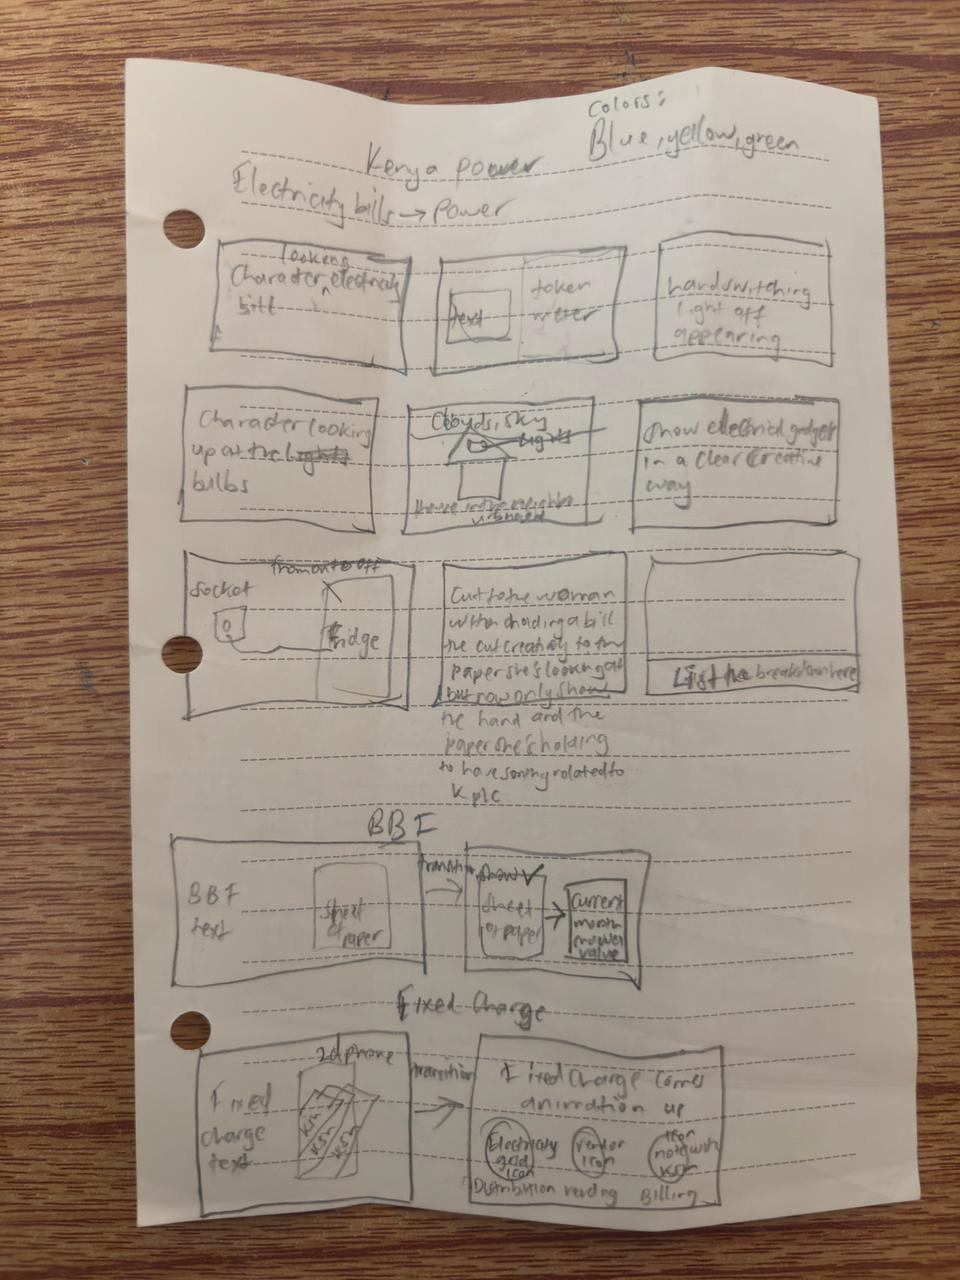 Colors:
Blue, yellow, green
Kenya power
Electricity bills → Power
looking
Character electricity
bill
text
token
meter
hand switching
light off
appearing
Character looking
up at the lights
bulbs
Clouds, sky
lights
House in the
Show electrical gadgets
in a clear creative
way
from on to off
Socket
fridge
Cut to the woman
holding a bill
the cut creatively to the
paper she's looking at
but now only show
the hand and the
paper she's holding
to have related to
Kplc
List the breakdown here
BBF
BBF
text
Sheet
of paper
transition
show
Sheet
of paper
Current
month
value
Fixed Charge
2d phone
Fixed
charge
text
KSh
KSh
KSh
transition
Fixed Charge comes
animation up
Electricity
grid
icon
icon
icon
note with
KSh
Distribution vending Billing